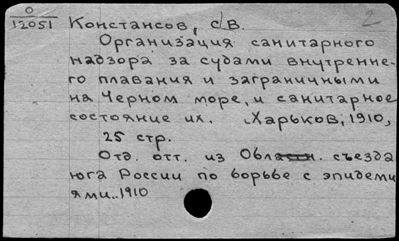 О
12051 Констансов, С.В. 2
Организация санитарного
надзора за судами внутренне-
го плавания и заграничными
на Черном море, и санитарное
состояние их. Харьков, 1910,
25 стр.
Отд. отт. из Област. съезда
юга России по борьбе с эпидеми
ями..1910